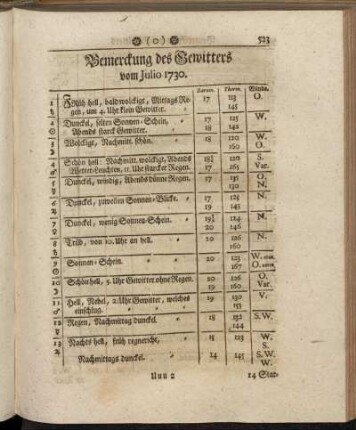 (0) 523
Bemerckung des Gewitters
vom Julio 1730.
Barom. Therm. Winde.
1 Früh hell, bald wolckigt, Mittags Re- 17 123 O.
gen, um 4. Uhr klein Gewitter. 145
2 Dunckel, selten Sonnen-Schein, 17 125 W.
Abends starck Gewitter. 18 142
3 Wolckigt, Nachmitt. schön. 18 120 O.
160
4 Schön hell: Nachmitt. wolckigt, Abends 18½ 130 S.
Wetter-Leuchten, 11. Uhr starcker Regen. 17 161 Var.
5 Dunckel, windig, Abends dünne Regen. 17 151 O.
130 N.
6 Dunckel, zuweilen Sonnen-Blicke. 17 129 N.
19 145
7 Dunckel, wenig Sonnen-Schein. 19½ 124 N.
20 146
8 Trüb, von 10. Uhr an hell. 20 126 N.
160
9 Sonnen-Schein. 20 123 W.
167 O.
10 Schön hell, 5. Uhr Gewitter ohne Regen. 20 126 O.
19 160 Var.
11 Hell, Nebel, 2. Uhr Gewitter, welches 19 130 V.
einschlug. 155
12 Regen, Nachmittag dunckel. 18 132 S.W.
144
13 Nachts hell, früh regnericht, 15 123 W.
S.
Nachmittags dunckel. 14 145 S.W.
W.
Uuu 2 14 Star-